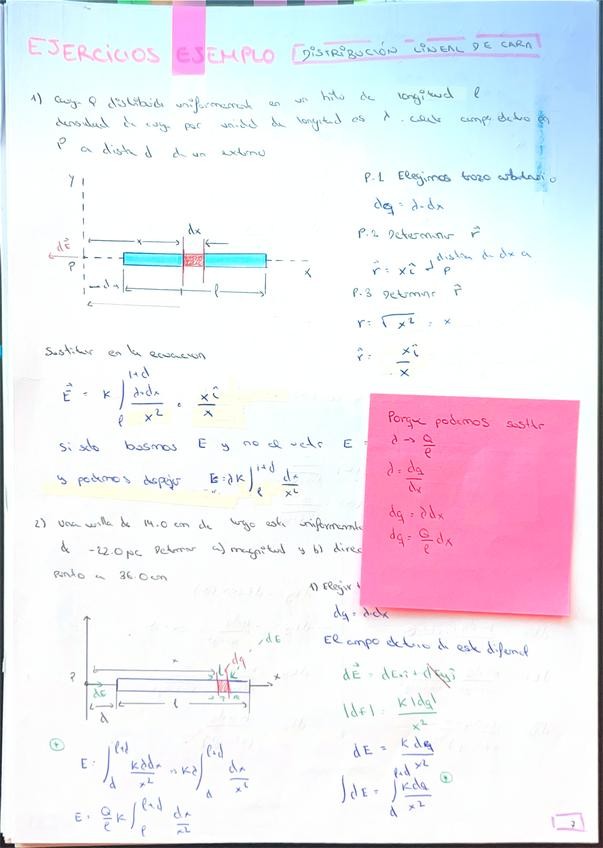 EJERCICIOS EJEMPLO DISTRIBUCIÓN LINEAL DE CARA
1) Carga Q distribuida uniformemente en un hilo de longitud l
densidad de carga por unidad de longitud es λ. calcule campo eléctrico en
P a distancia d de un extremo
P.1 Elegimos trozo arbitrario
dq = λ·dx
P.2 Determinar r⃗
r⃗ = x î → distan de dx a P
P.3 Determinar r⃗
r = √x² = x
r̂ = xî / x
y
dE⃗
P
x
dx
x
d
l
Sustituir en la ecuacion
E⃗ = K ∫ₗ^(l+d) λ·dx / x² · xî / x
si solo buscamos E y no el vector E =
y podemos despejar E = λK ∫ₗ^(l+d) dx / x²
Porqué podemos sustir
λ → Q/l
λ = dq/dx
dq = λdx
dq = Q/l dx
2) Una varilla de 14.0 cm de largo esta uniformemente
de -22.0 μC Determinar a) magnitud y b) direc
punto a 36.0 cm
1) Elegir
dq = λ·dx
El campo eléctrico de este diferencial
dE⃗ = dEx î + dEy ĵ
|dE| = K|dq| / x²
dE = K dq / x²
∫dE = ∫_d^(l+d) K dq / x²
dE
dq
x
P
dE
x
d
l
E = ∫_d^(l+d) Kλdx / x² = Kλ ∫_d^(l+d) dx / x²
E = Q/l K ∫ₗ^(l+d) dx / x²
7